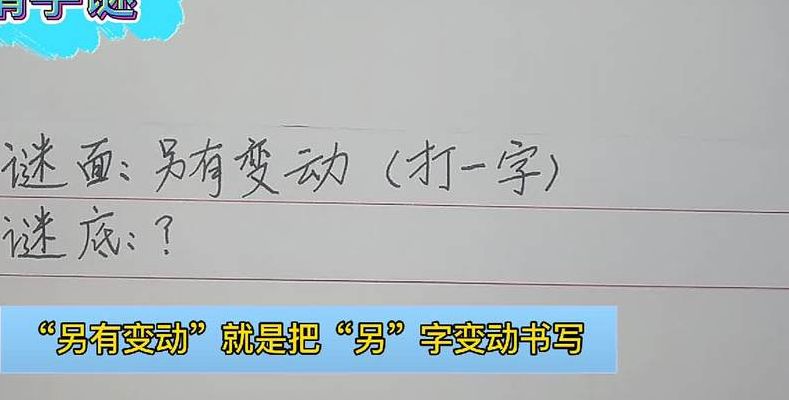 猜字谜
谜面：另有变动（打一字）
谜底：？
“另有变动”就是把“另”字变动书写